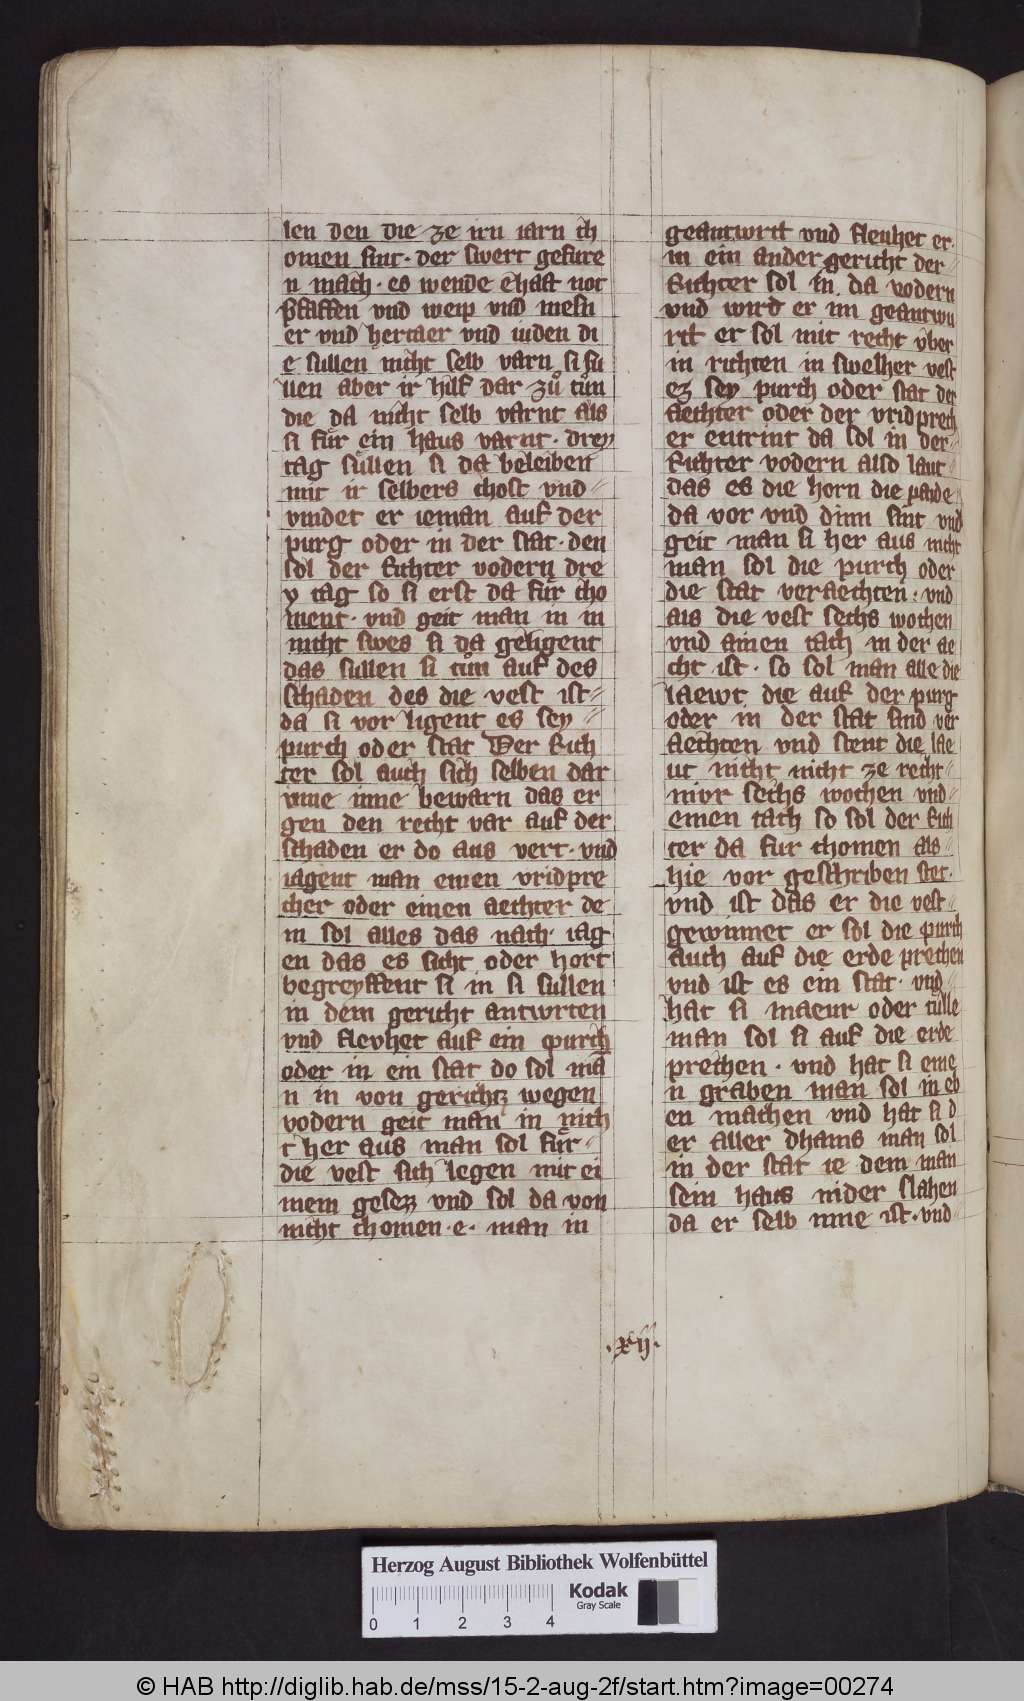 len den die ze irn iarn ch
omen sint · der swert gefure
n mach · es wende ehaft not
Pfaffen vnd weip vnd mesn
er vnd hertaer vnd iuden di
e sullen nicht selb varn si su
llen aber ir hilf dar zů tůn
die da nicht selb varnt als
si für ein haus varnt · drey
tag sullen si da beleiben
mit ir selbers chost vnd
vindet er ieman auf der
purg oder in der stat · den
sol der Richter vodern dre
y tag so si erst da für cho
ment · vnd geit man in in
nicht swes si da geligent
das sullen si tůn auf des
schaden des die vest ist
da si vor ligent es sey
purch oder stat Der Rich
ter sol auch sich selben dar
inne inne bewarn das er
gen den recht var auf der
schaden er do aus vert · vnd
iagent man einen vridpre
cher oder einen aechter de
m sol alles das nach iag
en das es sicht oder hort
begreyffent si in si sullen
in dem gericht antwrten
vnd flevhet auf ein purch
oder in ein stat do sol ma
n in von gerichtz wegen
vodern geit man in nich
t her aus man sol für
die vest sich legen mit ei
nem gesez vnd sol da von
nicht chomen · e · man in
geantwrt vnd fleuhet er
in ein ander gericht der
Richter sol in da vodern
vnd wird er im geantwu
rtt er sol mit recht vber
in richten in swelher vest
ez sey purch oder stat der
aechter oder der vridprech
er entrint da sol in der
Richter vodern also laut
das es die horn die paide
da vor vnd dinn sint vnd
geit man si her aus nicht
man sol die purch oder
die stat veraechten · vnd
als die vest sechs wochen
vnd ainen tach in der ae
cht ist · so sol man alle die
laewt die auf der purg
oder in der stat sind ver
aechten vnd stent die lae
ut nicht nicht ze recht
nivr sechs wochen vnd
einen tach so sol der Rich
ter da fur chomen als
hie vor geschriben stet ·
vnd ist das er die vest
gewinnet er sol die purch
auch auf die erde prechen
vnd ist es ein stat · vnd
hat si maeur oder tülle
man sol si auf die erde
prechen · vnd hat si eine
n graben man sol in eb
en machen vnd hat si d
er aller dhains man sol
in der stat ie dem man
sein haus nider slahen
da er selb inne ist · vnd
· xij ·
Herzog August Bibliothek Wolfenbüttel
0 1 2 3 4
Kodak
Gray Scale
© HAB http://diglib.hab.de/mss/15-2-aug-2f/start.htm?image=00274